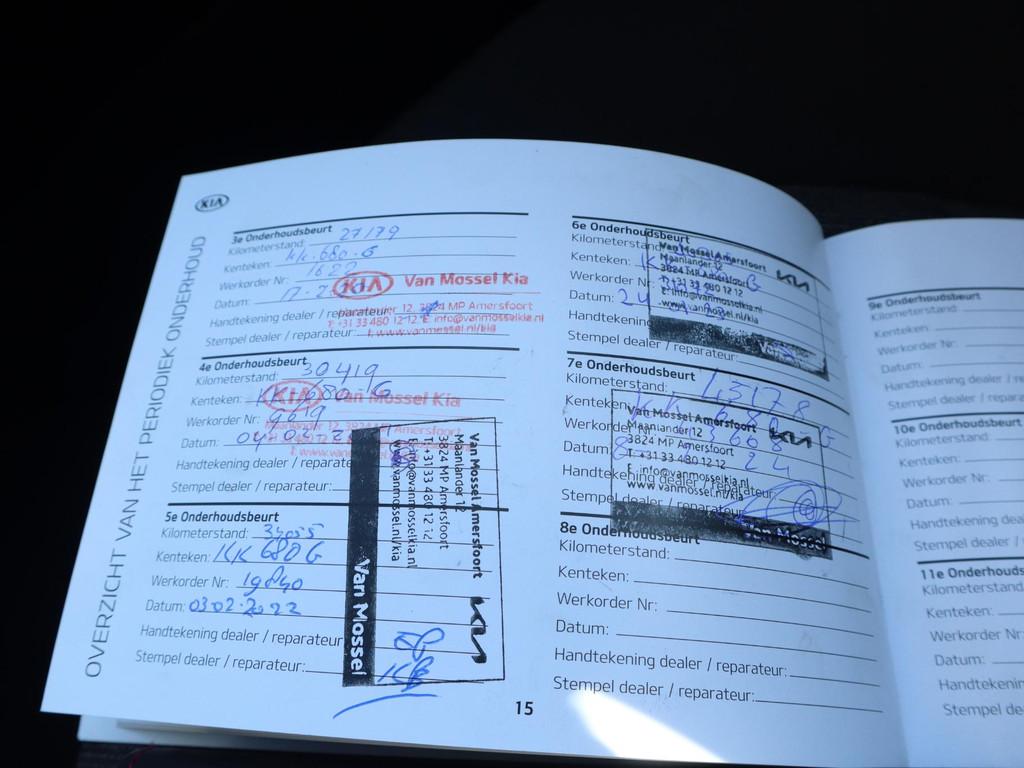 KIA
OVERZICHT VAN HET PERIODIEK ONDERHOUD
3e Onderhoudsbeurt
Kilometerstand: 27179
Kenteken: KK-680-G
Werkorder Nr: 1622
Datum: 17-2
Handtekening dealer / reparateur:
Stempel dealer / reparateur:
KIA Van Mossel Kia
Maanlander 12, 3824 MP Amersfoort
T: +31 33 480 12 12 E: info@vanmosselkia.nl
I: www.vanmossel.nl/kia
4e Onderhoudsbeurt
Kilometerstand: 30419
Kenteken: KK 680 G
Werkorder Nr: 9619
Datum: 04 02
Handtekening dealer / reparateur
Stempel dealer / reparateur:
KIA Van Mossel Kia
Maanlander 12, 3824 MP Amersfoort
5e Onderhoudsbeurt
Kilometerstand: 34055
Kenteken: KK 680 G
Werkorder Nr: 19840
Datum: 03-02-2022
Handtekening dealer / reparateur
Stempel dealer / reparateur:
Van Mossel Amersfoort
Maanlander 12
3824 MP Amersfoort
T: +31 33 480 12 12
E: info@vanmosselkia.nl
www.vanmossel.nl/kia
KIA
Van Mossel
15
6e Onderhoudsbeurt
Kilometerstand:
Kenteken: K
Werkorder Nr:
Datum: 24
Handtekening
Stempel dealer / reparateur:
Van Mossel Amersfoort
Maanlander 12
3824 MP Amersfoort
T: +31 33 480 12 12
E: info@vanmosselkia.nl
www.vanmossel.nl/kia
KIA
7e Onderhoudsbeurt
Kilometerstand: 43178
Kenteken: KK 680-G
Werkorder Nr: 3608
Datum: 8 24
Handtekening dealer / reparateur:
Stempel dealer / reparateur
Van Mossel Amersfoort
Maanlander 12
3824 MP Amersfoort
T: +31 33 480 12 12
E: info@vanmosselkia.nl
www.vanmossel.nl/kia
KIA
Van Mossel
8e Onderhoudsbeurt
Kilometerstand:
Kenteken:
Werkorder Nr:
Datum:
Handtekening dealer / reparateur:
Stempel dealer / reparateur:
9e Onderhoudsbeurt
Kilometerstand:
Kenteken:
Werkorder Nr:
Datum:
Handtekening dealer /
Stempel dealer / re
10e Onderhoudsbeurt
Kilometerstand:
Kenteken:
Werkorder Nr:
Datum:
Handtekening dea
Stempel dealer /
11e Onderhouds
Kilometerstand
Kenteken:
Werkorder Nr:
Datum:
Handtekenin
Stempel de